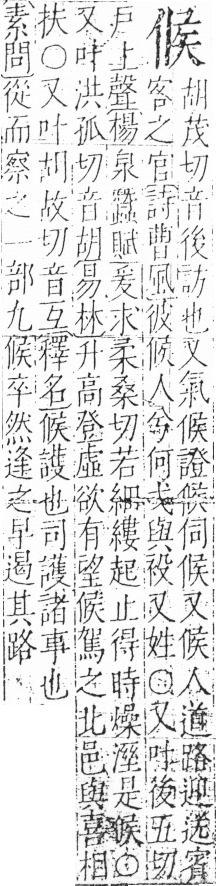 候
胡茂切音後訪也又氣候證候伺候又候人道路迎送賓
客之官詩曹風彼候人兮何戈與祋又姓〇又叶後五切
戶上聲楊泉蠶賦爰求柔桑切若細縷起止得時燥溼是候〇
又叶洪孤切音胡易林升高登虛欲有望候駕之北邑與喜相
扶〇又叶胡故切音互釋名候護也司護諸事也
素問從而察之一部九候卒然逢之早遏其路